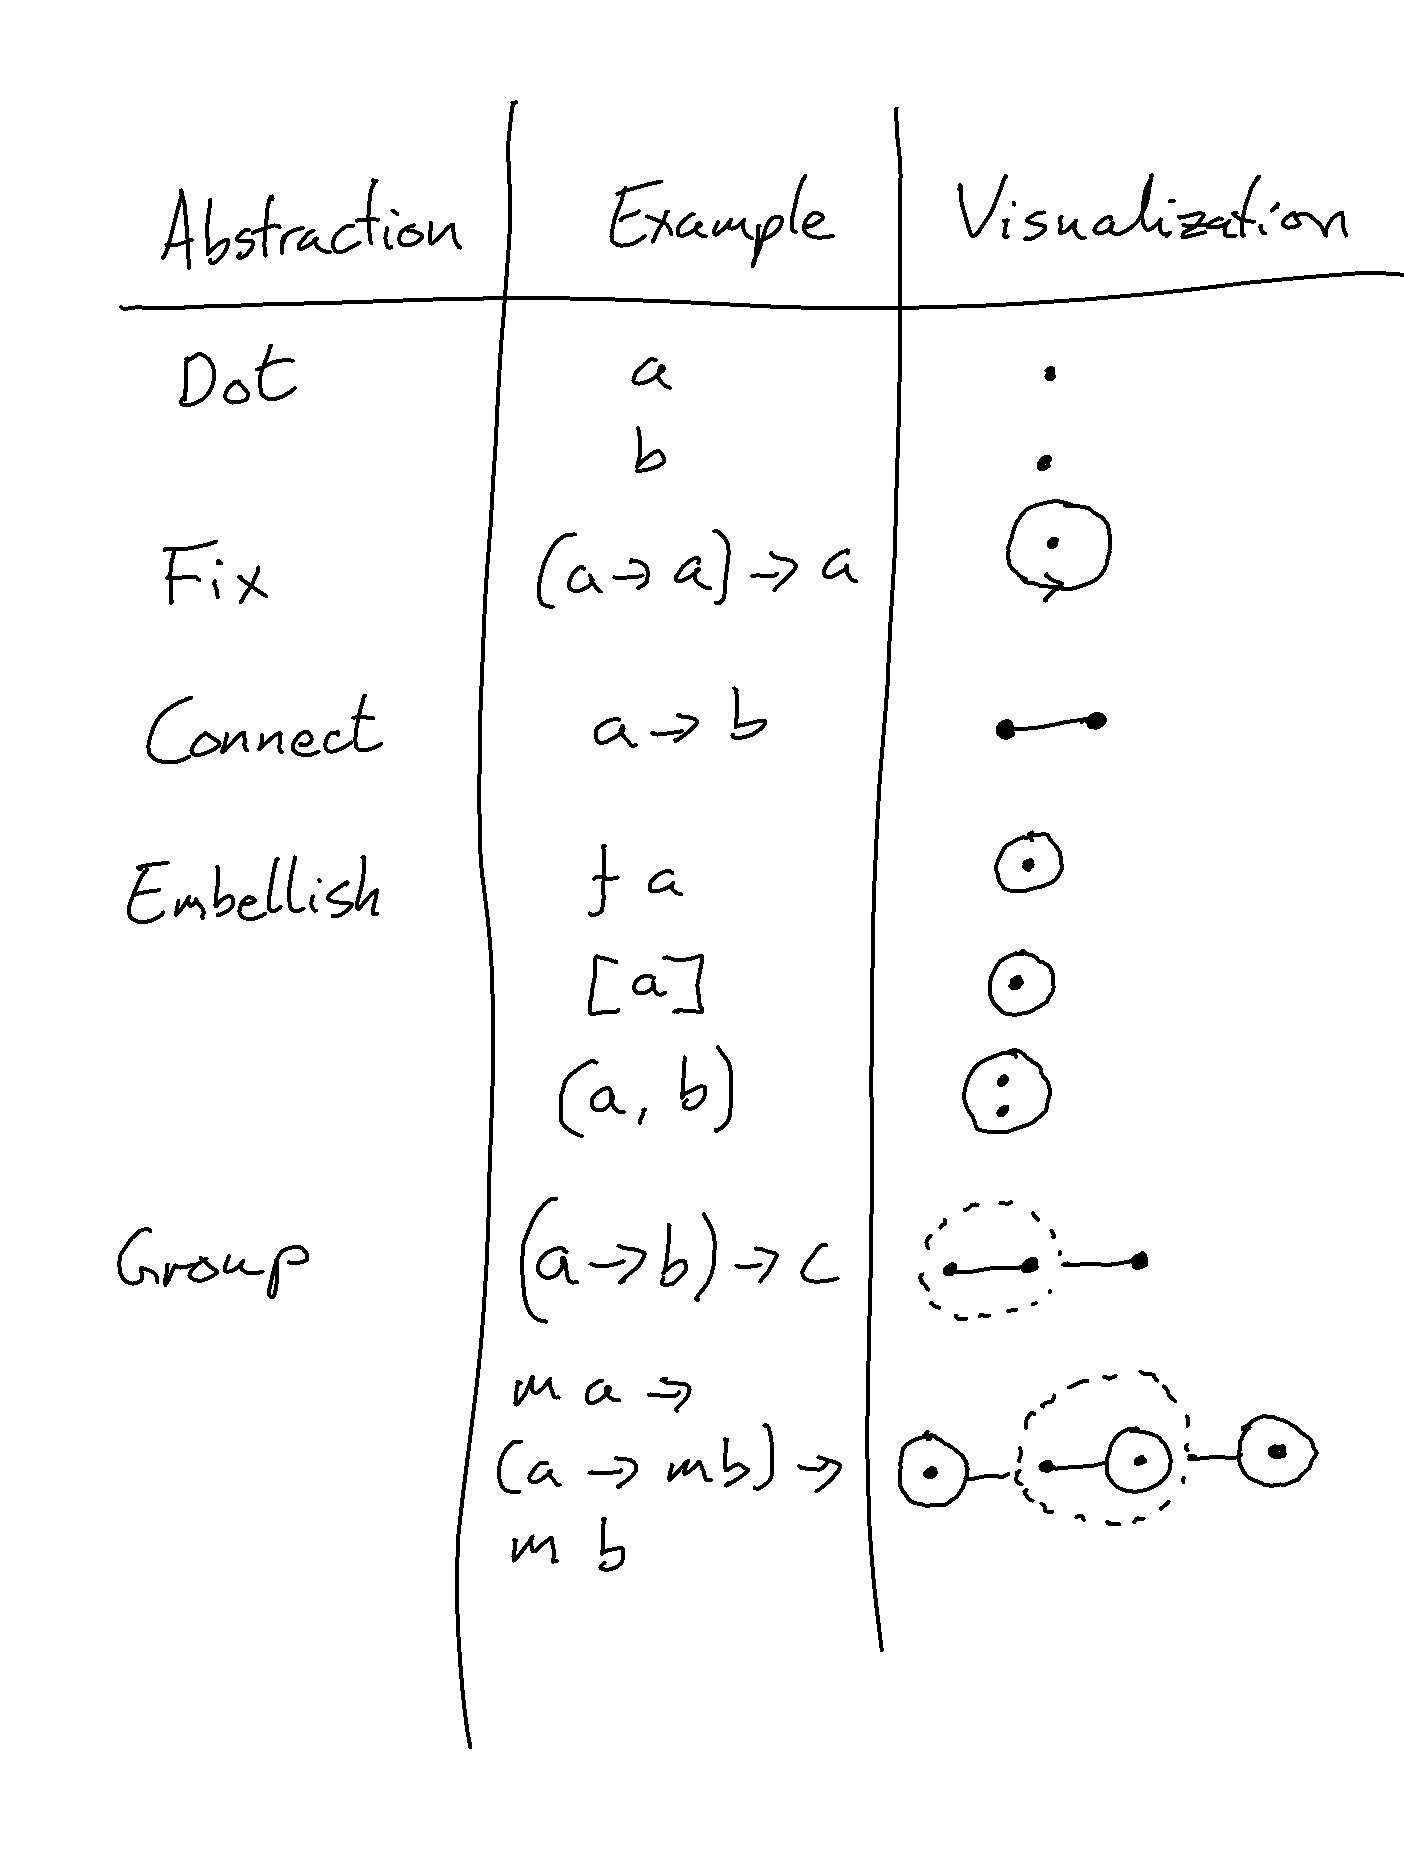 Abstraction Example Visualization
Dot a
b
Fix (a → a) → a
Connect a → b
Embellish f a
[a]
(a, b)
Group (a → b) → c
m a →
(a → m b) →
m b